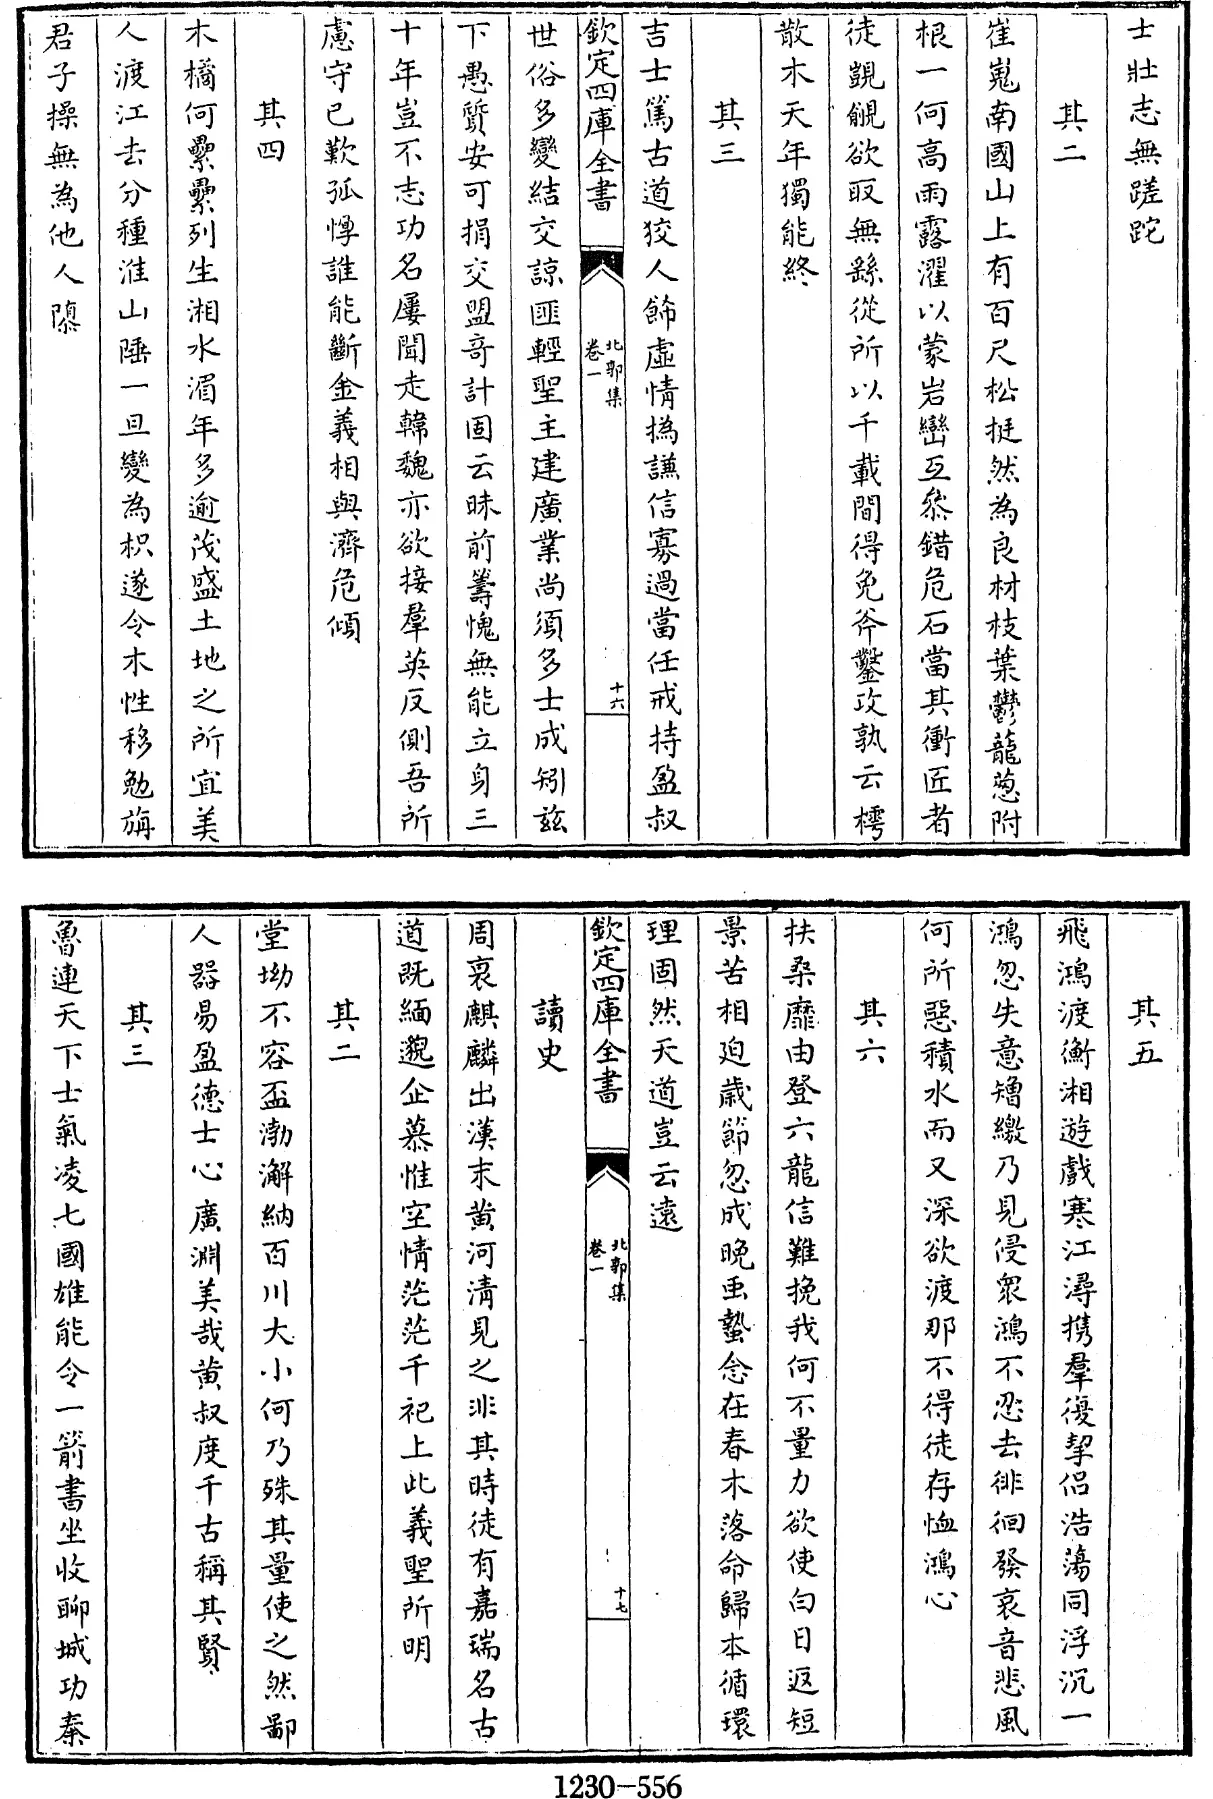 士壯志無蹉跎
其二
崔嵬南國山上有百尺松挺然為良材枝葉鬱蘢蔥附
根一何高雨露濯以蒙岩巒互叅錯危石當其衝匠者
徒覬覦欲取無繇從所以千載間得免斧鑿攻孰云樗
散木天年獨能終
其三
吉士篤古道狡人飾虛情撝謙信寡過當任戒持盈叔
欽定四庫全書
北郭集
卷一
十六
世俗多變結交諒匪輕聖主建廣業尚須多士成矧兹
下愚質安可捐交盟奇計固云昧前籌愧無能立身三
十年豈不志功名屢聞走韓魏亦欲接羣英反側吾所
慮守已歎孤惸誰能斷金義相與濟危傾
其四
木橘何纍纍列生湘水湄年多逾茂盛土地之所宜美
人渡江去分種淮山陲一旦變為枳遂令木性移勉旃
君子操無為他人隳
其五
飛鴻渡衡湘遊戲寒江潯携羣復挈侣浩蕩同浮沉一
鴻忽失意矰繳乃見侵衆鴻不忍去徘徊發哀音悲風
何所惡積水而又深欲渡那不得徒存恤鴻心
其六
扶桑靡由登六龍信難挽我何不量力欲使白日返短
景苦相迫歲節忽成晚虫蟄念在春木落命歸本循環
理固然天道豈云遠
欽定四庫全書
北郭集
卷一
十七
讀史
周衰麒麟出漢末黄河清見之非其時徒有嘉瑞名古
道既緬邈企慕惟空情茫茫千祀上此義聖所明
其二
堂坳不容盃渤澥納百川大小何乃殊其量使之然鄙
人器易盈德士心廣淵美哉黄叔度千古稱其賢
其三
魯連天下士氣凌七國雄能令一箭書坐收聊城功秦
1230-556